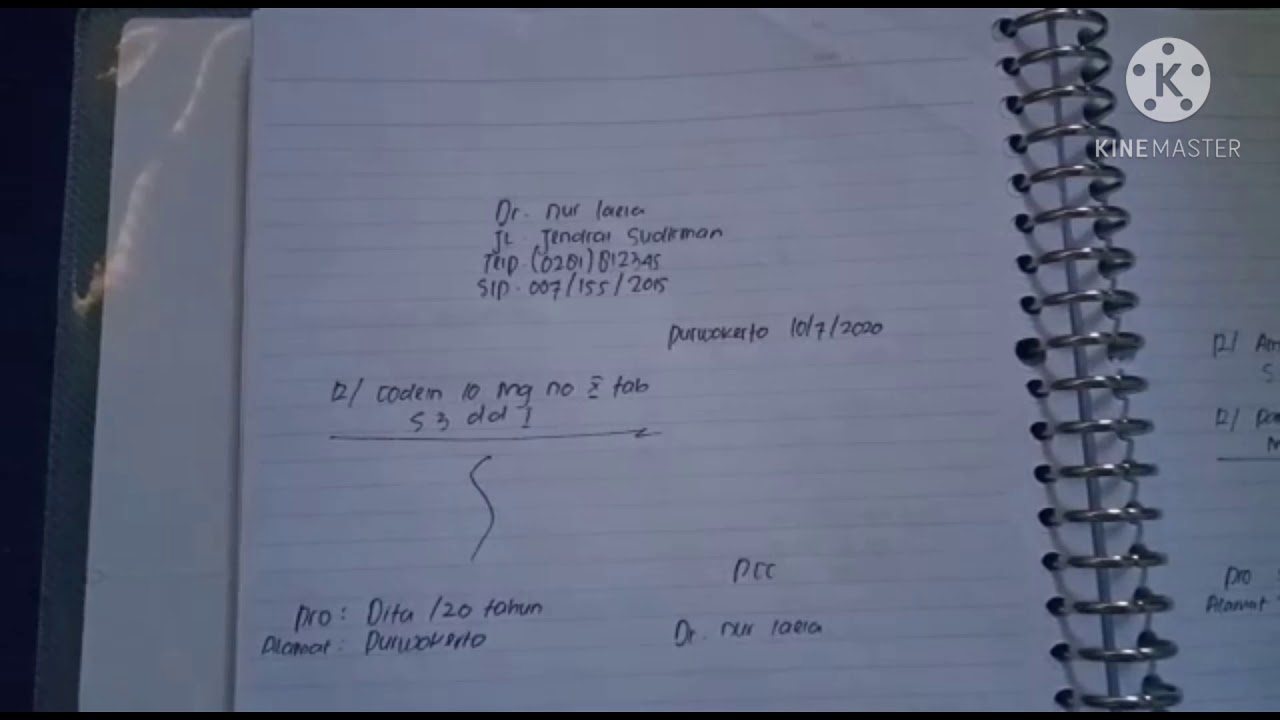 Dr. nur laela
JL. Jendral Sudirman
Telp. (0281) 812345
SIP. 007/155/2015
Purwokerto 10/7/2020
R/ codein 10 mg no X tab
S 3 dd I
pcc
pro : Dita /20 tahun
Alamat : Purwokerto
Dr. nur laela
R/ Am
S
R/ pa
M
pro :
Alamat :
K
KINEMASTER